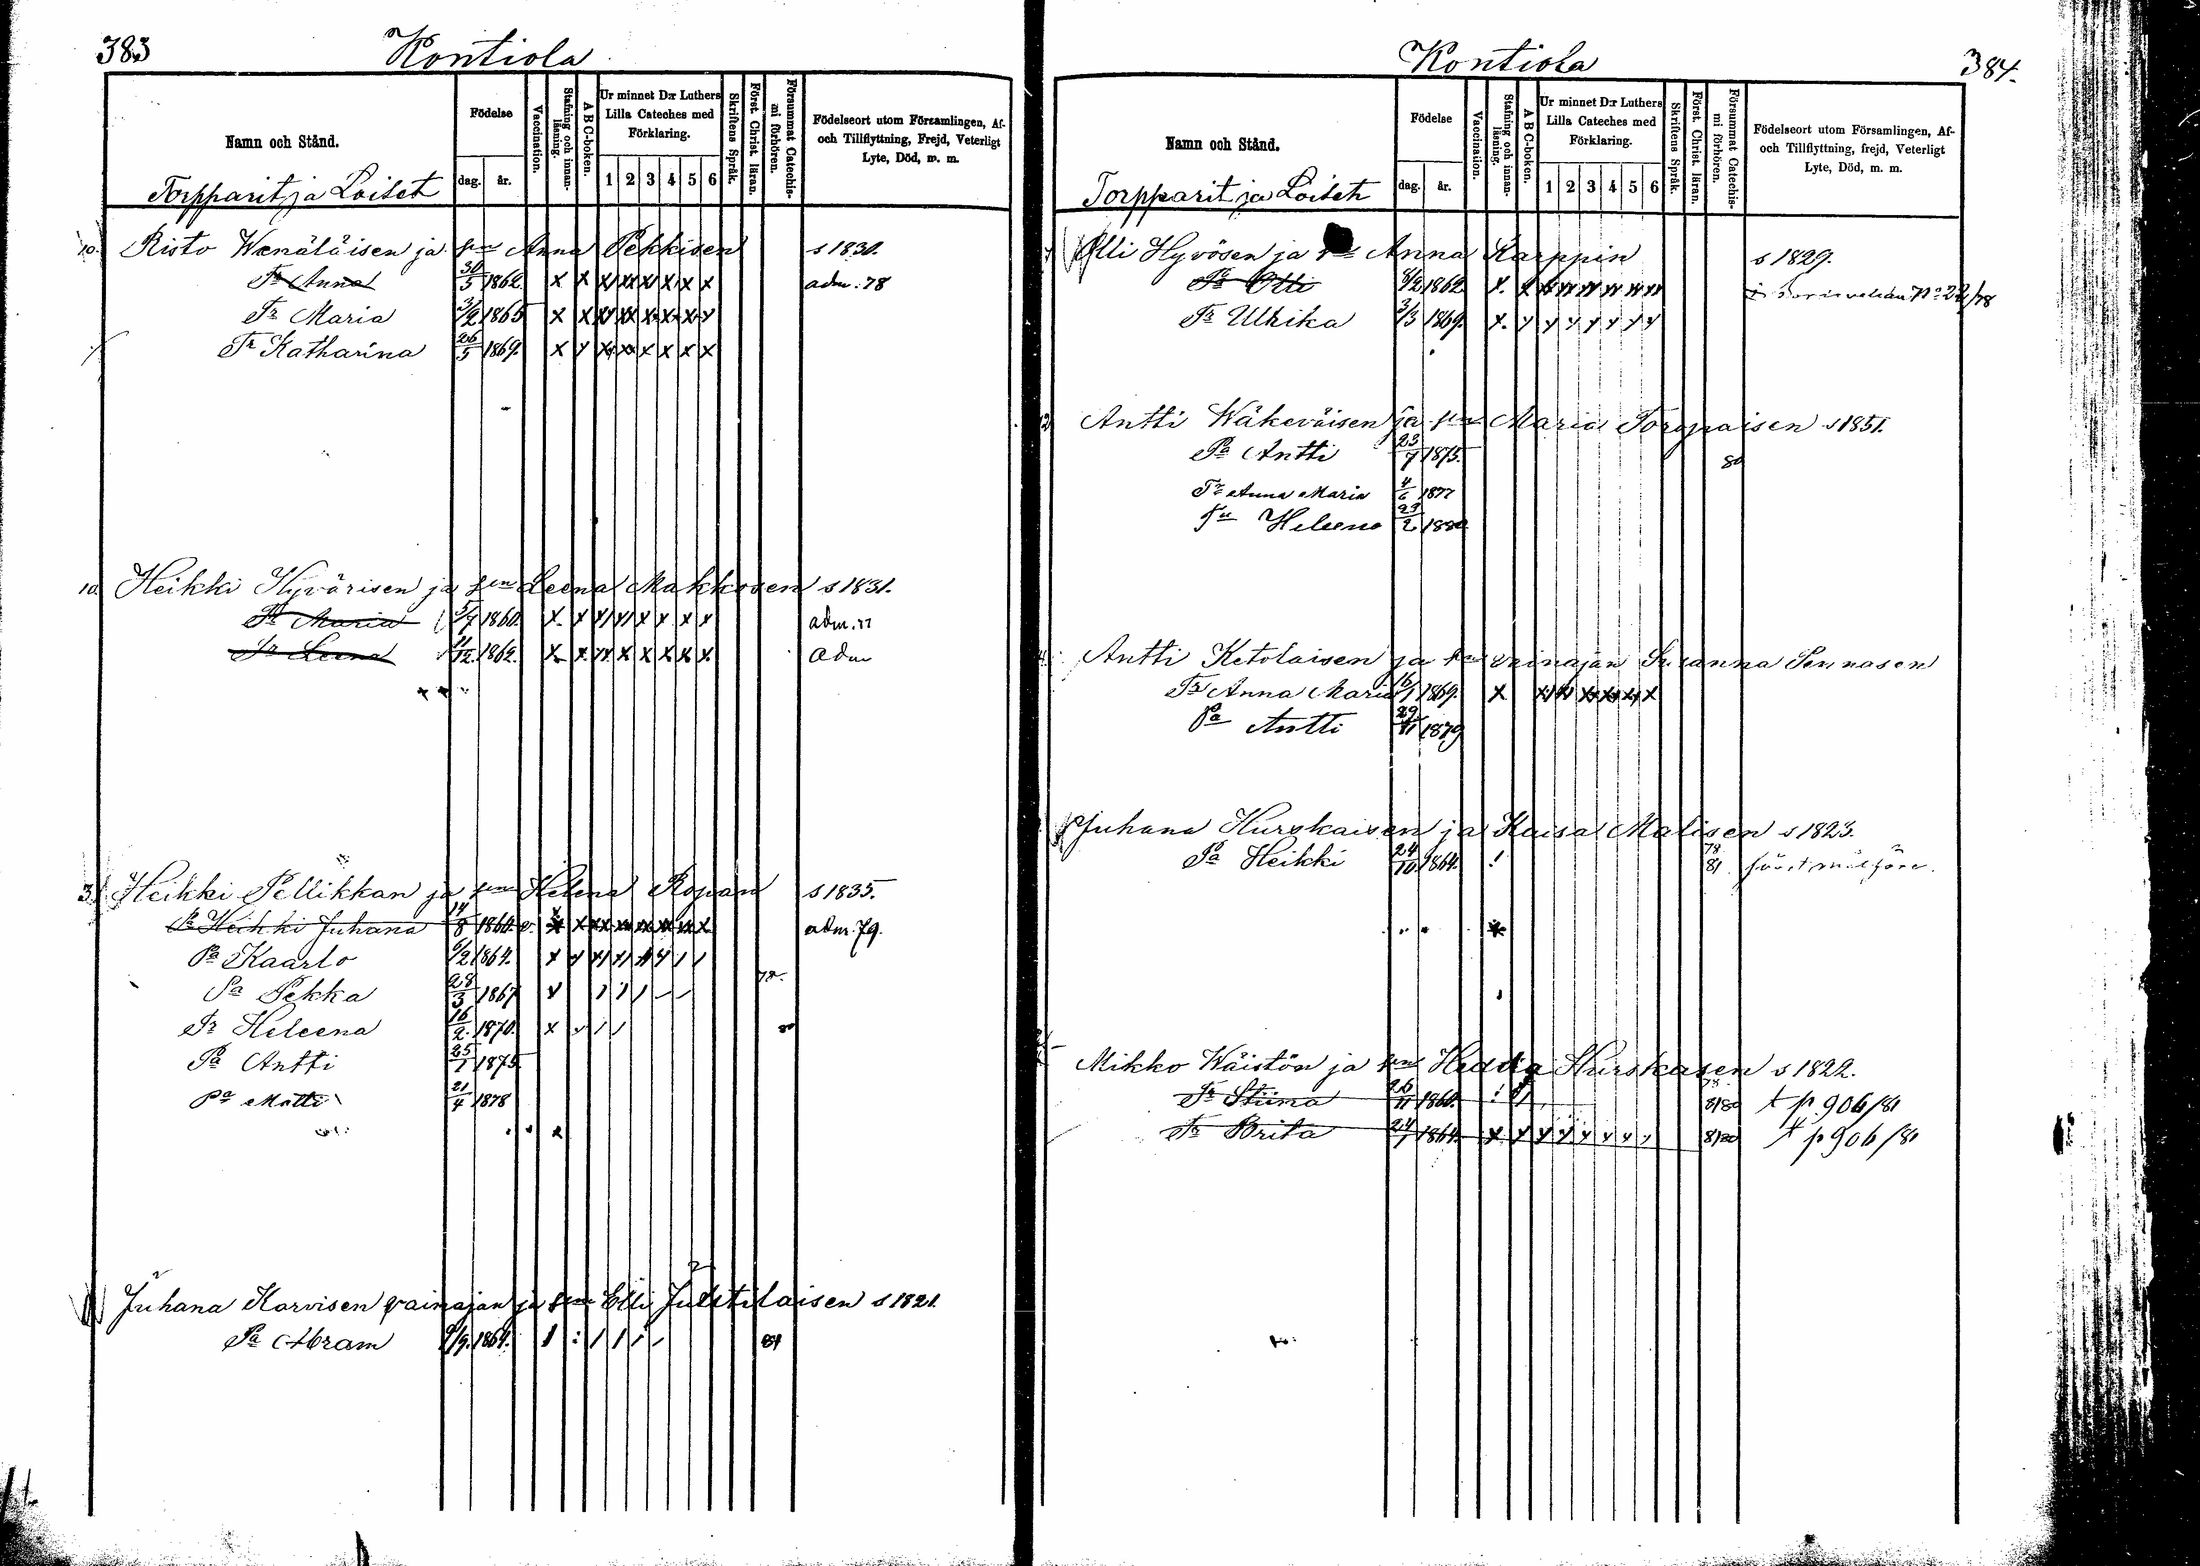 383 Kontiola
Namn och Stånd. Födelse dag. år. Vaccination. Stafning och innan-läsning. A B C-boken. Ur minnet D:r Luthers Lilla Cateches med Förklaring. 1 2 3 4 5 6 Skriftens Språk. Först. Christ. läran. Försummat Catechis-mi förhören. Födelseort utom Församlingen, Af- och Tillflyttning, Frejd, Veterligt Lyte, Död, m. m.
Torpparit ja Loiset
10. Risto Wenäläisen ja sen Anna Pekkisen s 1830.
Tr Anna 30/5 1862. x x x x x x x x adm. 78
Tr Maria 2/2 1865 x x x x x x x x
Tr Katharina 26/5 1869. x y x x x x x x
10. Heikki Hyvärisen ja sen Leena Makkosen s 1831.
Tr Maria 5/7 1860. x x x x x x x x adm. 77
Tr Leena 11/12. 1862. x x x x x x x x adm
3. Heikki Pellikkan ja sen Helena Ropan s 1835.
Pa Heikki Juhana 14/8 1860. v. x x x x x x x x adm. 79.
Pa Kaarlo 6/2 1864.
Pa Pekka 28/3 1867 78
Tr Heleena 16/2. 1870. 80
Pa Antti 25/7 1875
Pa Matti 21/4 1878
Juhana Karvisen vainajan ja sen Elli Juutilaisen s 1821.
Pa Abram 9/9. 1864. 81
Kontiola 384.
Namn och Stånd. Födelse dag. år. Vaccination. Stafning och innan-läsning. A B C-boken. Ur minnet D:r Luthers Lilla Cateches med Förklaring. 1 2 3 4 5 6 Skriftens Språk. Först. Christ. läran. Försummat Catechis-mi förhören. Födelseort utom Församlingen, Af- och Tillflyttning, frejd, Veterligt Lyte, Död, m. m.
Torpparit ja Loiset
Olli Hyvösen ja Anna Karppin s 1829.
Pa Olli 8/2 1862
Tr Ulrika 2/3 1869.
Antti Wäkeväisen ja sen Maria Toropaisen s 1851.
Pa Antti 23/7 1875. 80
Tr Anna Maria 4/6 1877
Tr Heleena 29/2 1880
Antti Ketolaisen ja sen vainajan Susanna Pennasen
Tr Anna Maria 16/1 1869. x
Pa Antti 29/11 1879
Juhana Hurskaisen ja Kaisa Malisen s 1823.
Pa Heikki 24/10. 1864. 78 81
Mikko Wäistön ja sen Hedda Hurskasen s 1822.
Tr Stiina 26/11 1860. 81 80 t p. 906/81
Tr Brita 24/1 1864. 81 80 t p 906/81